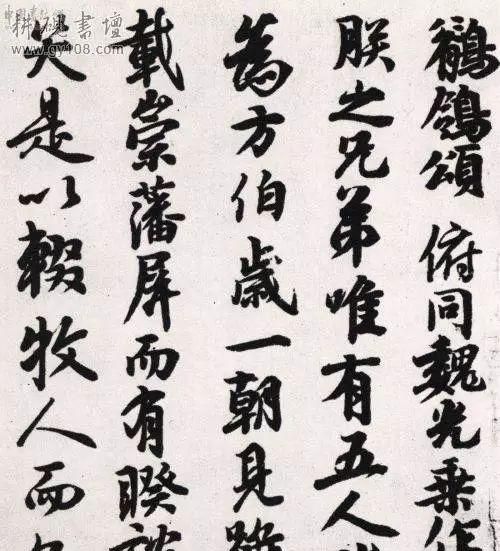 耕硯書壇
www.gy108.com
鶺鴒頌 俯同魏光乘作
朕之兄弟唯有五人
為方伯歲一朝見雖
載崇藩屏而有睽
笑是以輟牧人而